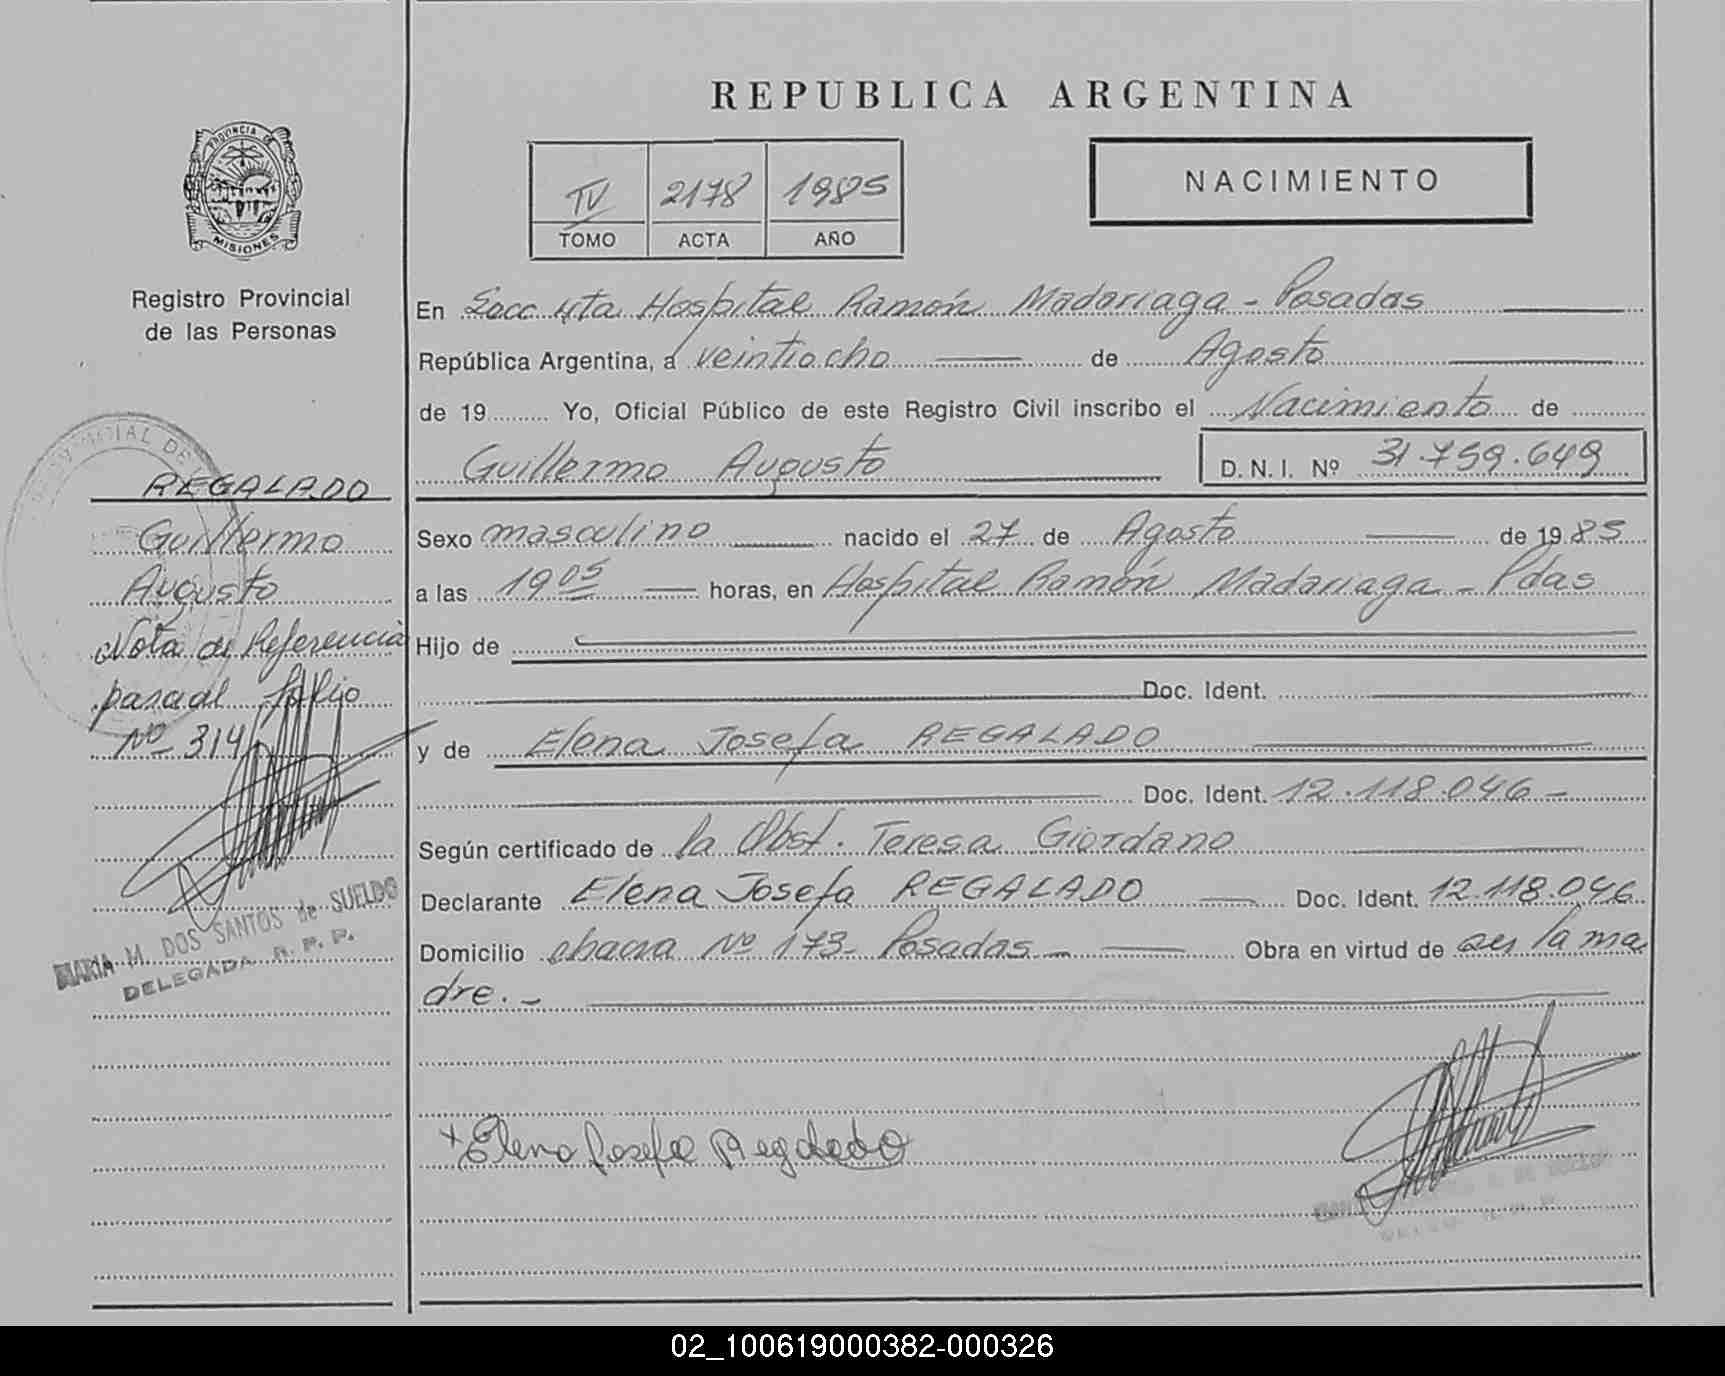 REPUBLICA ARGENTINA
PROVINCIA DE
MISIONES
Registro Provincial
de las Personas
IV 2178 1985
TOMO ACTA AÑO
NACIMIENTO
En Secc 4ta Hospital Ramón Madariaga - Posadas
República Argentina, a veintiocho de Agosto
de 19 Yo, Oficial Público de este Registro Civil inscribo el Nacimiento de
Guillermo Augusto D.N.I. Nº 31.759.649
REGALADO
Guillermo
Augusto
Nota de Referencia
pasa al folio
Nº 314
MARIA M. DOS SANTOS de SUELDO
DELEGADA R. P. P.
Sexo masculino nacido el 27 de Agosto de 1985
a las 19 05 horas, en Hospital Ramón Madariaga - Pdas
Hijo de
Doc. Ident.
y de Elena Josefa REGALADO
Doc. Ident. 12.118.046 -
Según certificado de la Obst. Teresa Giordano
Declarante Elena Josefa REGALADO Doc. Ident. 12.118.046
Domicilio chacra Nº 173- Posadas - Obra en virtud de ser la ma
dre.-
+ Elena Josefa Regalado
02_100619000382-000326